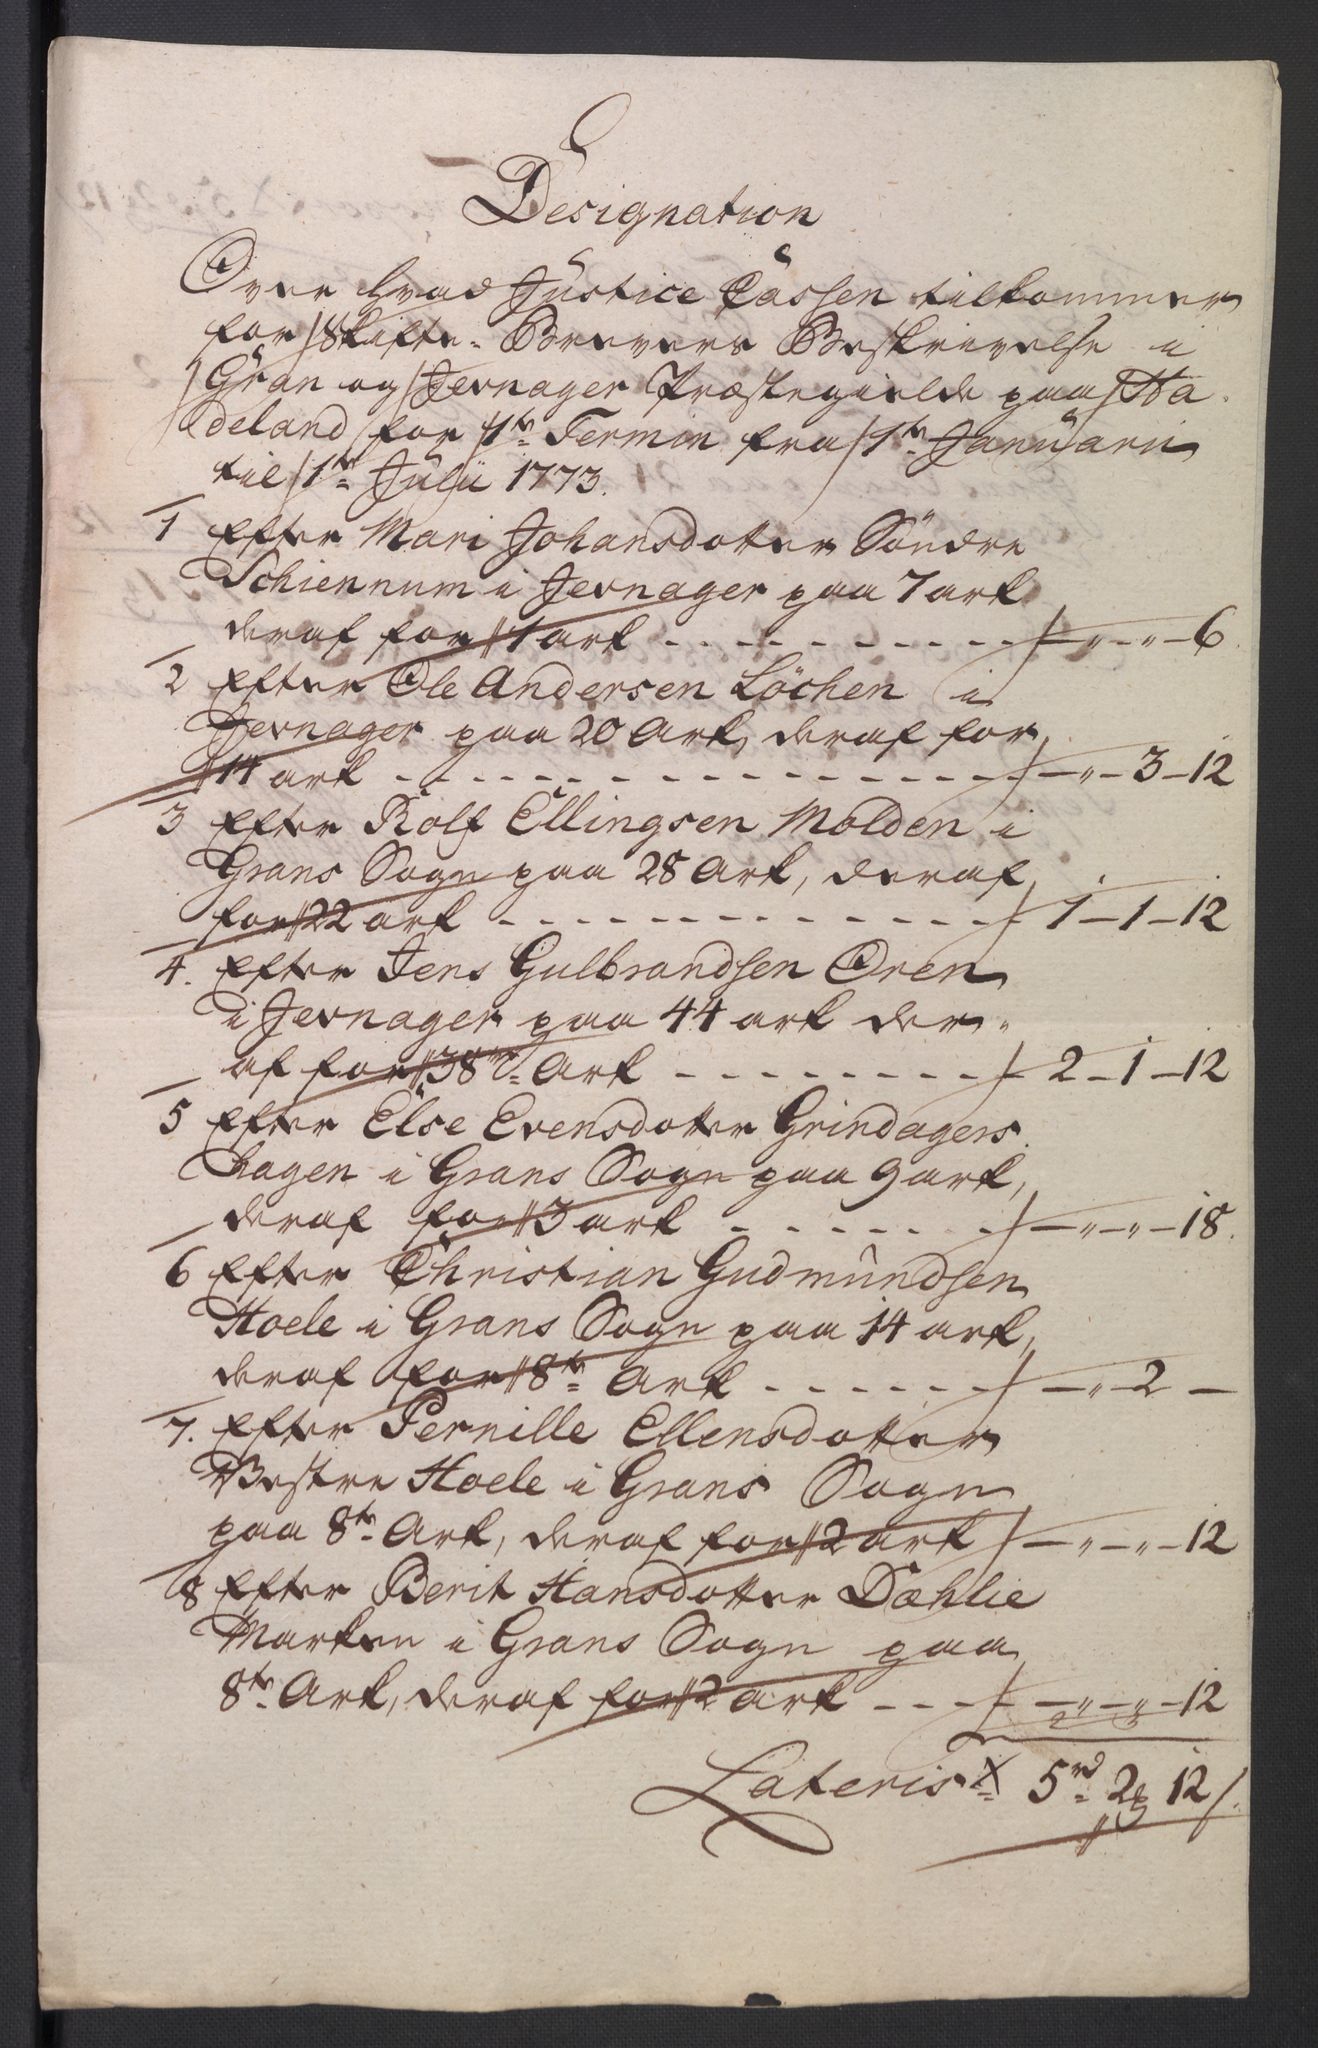 Designation
Over hvad Justice Cassen tilkommer
for Skifte-Brevers Beskrivelse i
Gran og Jevnager Præstegield paa Ha-
deland for 1te Termin fra 1te Januarii
til 1te Julii 1773.
1 Efter Mari Johansdotter Söndre
Schiennum i Jevnager paa 7 ark
deraf for 1 ark - - - - - - - - - - „ - „ - 6.
2 Efter Ole Andersen Löchen i
Jevnager paa 20 Ark, deraf for
14 ark - - - - - - - - - - - - - - - „ - 3 - 12
3 Efter Rolf Ellingsen Molden i
Grans Sogn paa 28 Ark, deraf
for 22 ark - - - - - - - - - - - - 1 - 1 - 12
4. Efter Jens Gulbrandsen Oren
i Jevnager paa 44 ark der-
af for 38te Ark - - - - - - - - - 2 - 1 - 12
5 Efter Else Evensdotter Grindagers
hagen i Grans Sogn paa 9 ark,
deraf for 3 ark - - - - - - - - „ - „ - 18.
6 Efter Christian Gudmundsen
Hoele i Grans Sogn paa 14 ark,
deraf for 8te Ark - - - - - - - „ - 2 -
7. Efter Pernille Ellensdotter
Vestre Hoele i Grans Sogn
paa 8te Ark, deraf for 2 ark - „ - „ - 12
8 Efter Berit Hansdotter Dæhlie
Marken i Grans Sogn paa
8te Ark, deraf for 2 ark - - - - „ - „ - 12
2 3
Lateris 5rd 2 12